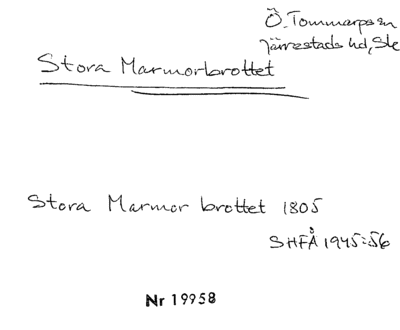 Ö. Tommarps sn
Järrestads hd, Sk
Stora Marmorbrottet
Stora Marmor brottet 1805
SHFÅ 1945:56
Nr 19958